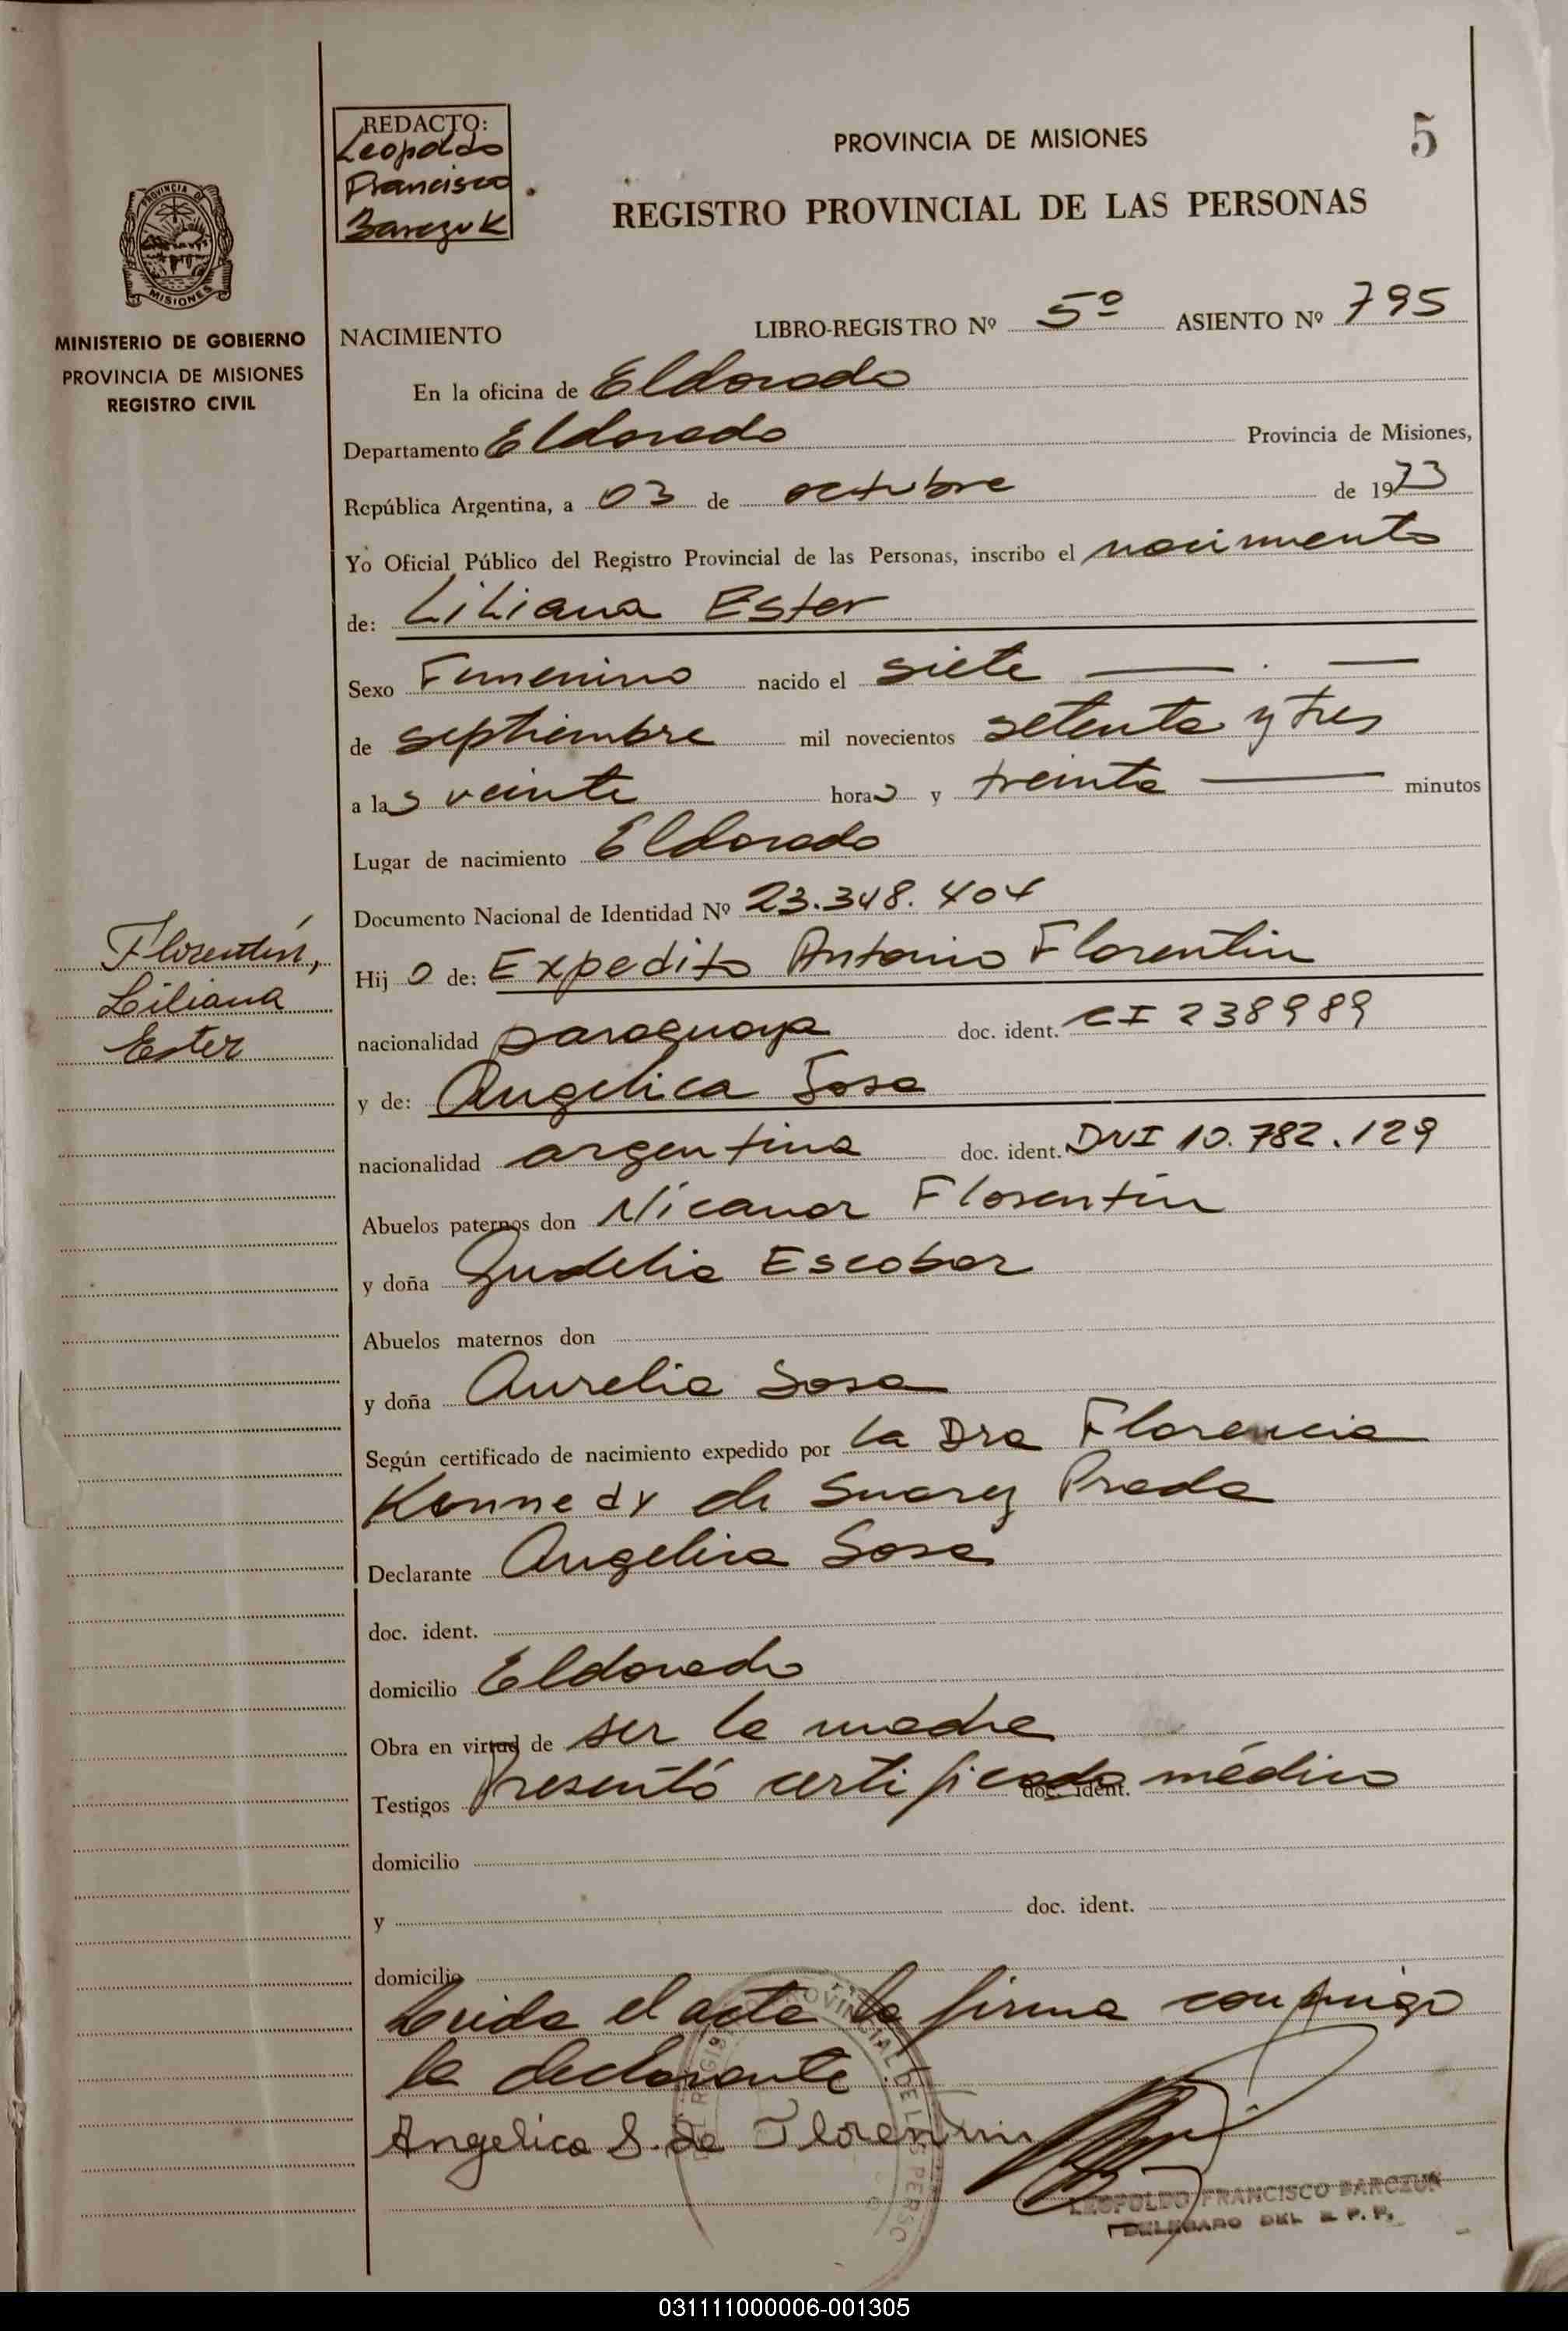 REDACTO:
Leopoldo
Francisco
Barczuk
PROVINCIA DE MISIONES
5
REGISTRO PROVINCIAL DE LAS PERSONAS
PROVINCIA DE
MISIONES
MINISTERIO DE GOBIERNO
PROVINCIA DE MISIONES
REGISTRO CIVIL
NACIMIENTO LIBRO-REGISTRO Nº 5º ASIENTO Nº 795
En la oficina de Eldorado
Departamento Eldorado Provincia de Misiones,
República Argentina, a 03 de octubre de 1973
Yo Oficial Público del Registro Provincial de las Personas, inscribo el nacimiento
de: Liliana Ester
Sexo Femenino nacido el siete
de septiembre mil novecientos setenta y tres
a las veinte horas y treinta minutos
Lugar de nacimiento Eldorado
Documento Nacional de Identidad Nº 23.348.404
Florentín,
Liliana
Ester
Hij a de: Expedito Antonio Florentin
nacionalidad paraguaya doc. ident. CI 238989
y de: Angelica Sosa
nacionalidad argentina doc. ident. DNI 10.782.129
Abuelos paternos don Nicanor Florentin
y doña Gudelia Escobar
Abuelos maternos don
y doña Aurelia Sosa
Según certificado de nacimiento expedido por la Dra Florencia
Kennedy de Suarez Prada
Declarante Angelica Sosa
doc. ident.
domicilio Eldorado
Obra en virtud de ser la madre
Testigos Presentó certificado doc. ident. médico
domicilio
y doc. ident.
domicilio
Leida el acta la firma conmigo
la declarante.
Angelica S. de Florentin
LEOPOLDO FRANCISCO BARCZUK
DELEGADO DEL R. P. P.
031111000006-001305